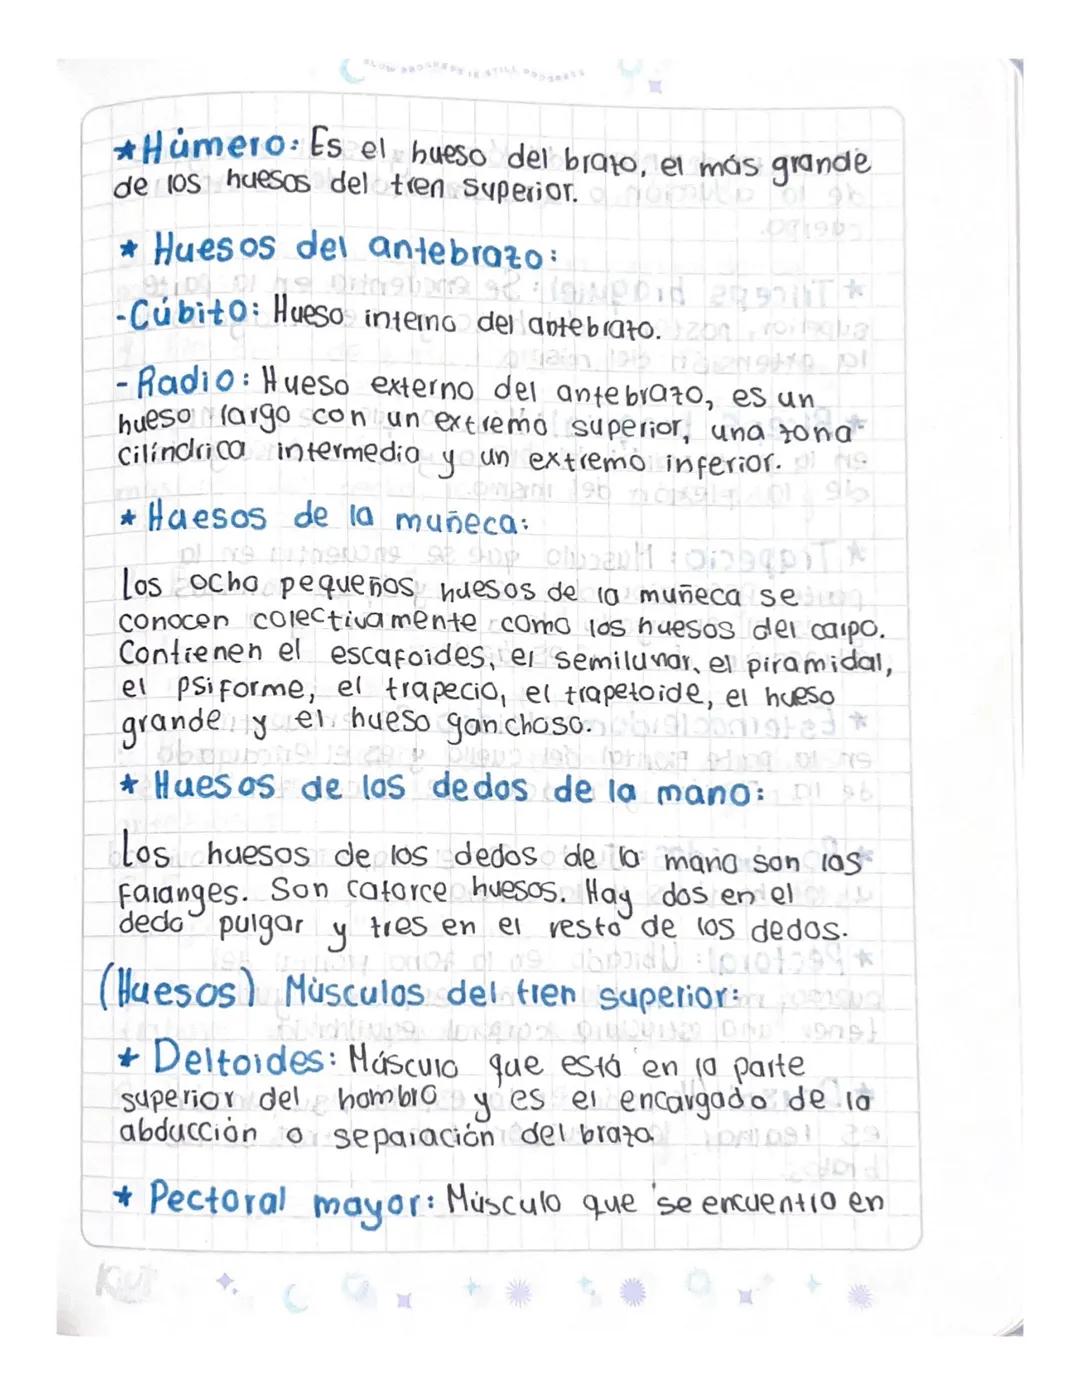 SLOW PROGRESS IS STILL PROGRESS
★Húmero: Es el hueso del brazo, el más grande
de los huesos del tren superior.
★ Huesos del antebrazo:
-Cúbito: Hueso interno del antebrazo.
- Radio: Hueso externo del antebrazo, es un
hueso largo con un extremo superior, una zona
cilíndrica intermedia y un extremo inferior.
★ Huesos de la muñeca:
Los ocho pequeños huesos de la muñeca se
conocen colectivamente como los huesos del carpo.
Contienen el escafoides, el semilunar, el piramidal,
el psiforme, el trapecio, el trapetoide, el hueso
grande y el hueso ganchoso.
★ Huesos de los dedos de la mano:
Los huesos de los dedos de la mano son las
falanges. Son catorce huesos. Hay dos en el
dedo pulgar y tres en el resto de los dedos.
(Huesos) Músculos del tren superior:
★ Deltoides: Músculo que está en la parte
superior del hombro y es el encargado de la
abducción o separación del brazo.
★ Pectoral mayor: Músculo que se encuentra en